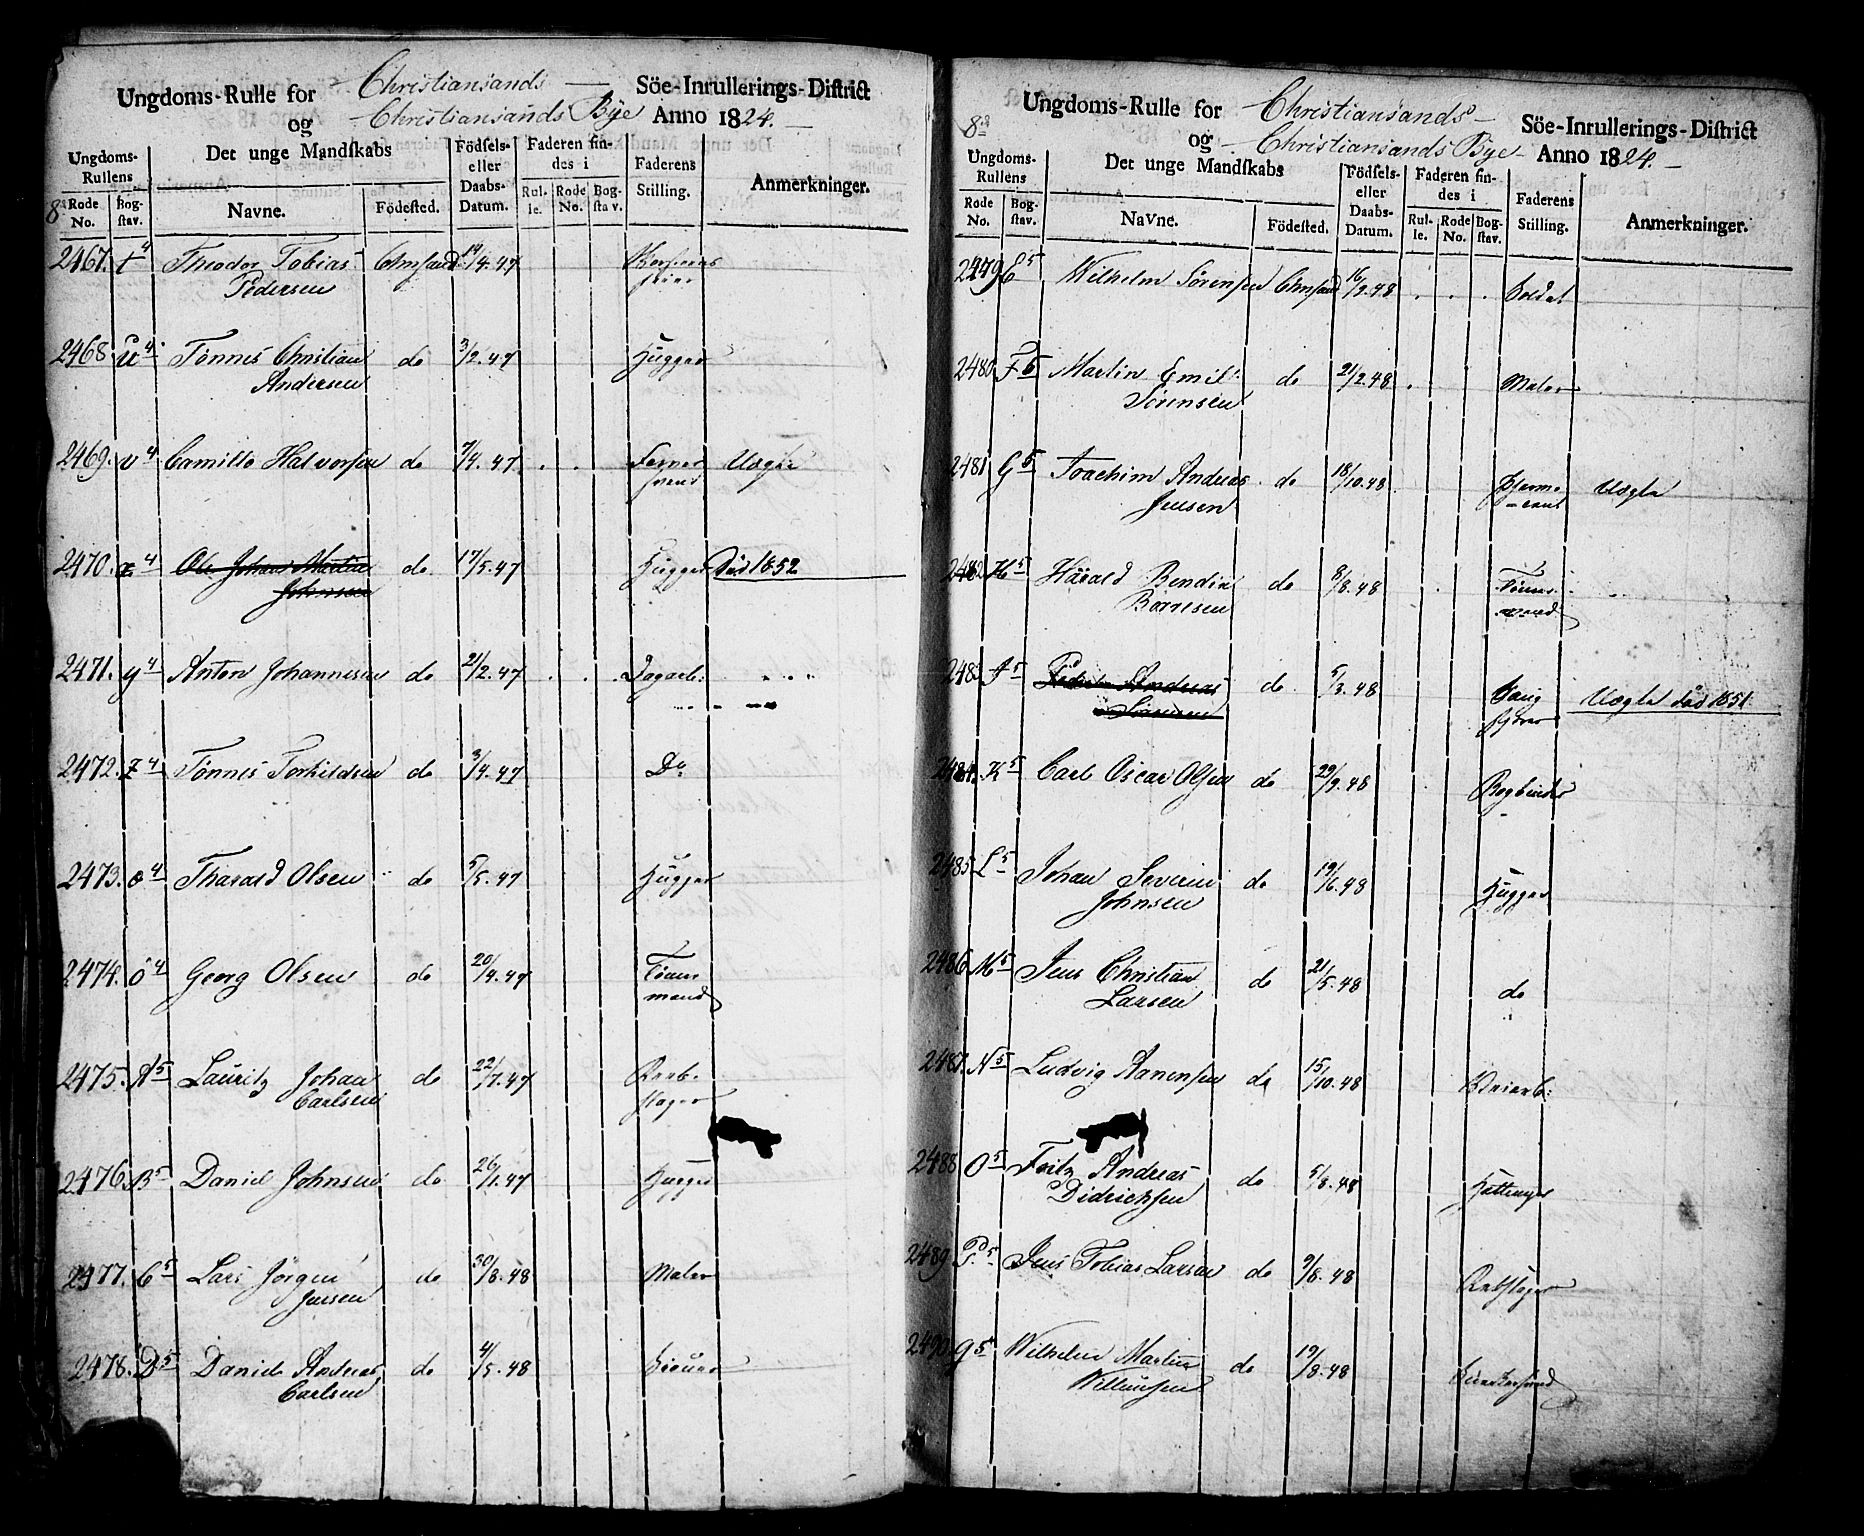 Ungdoms-Rulle for Christiansands Söe-Inrullerings-District
og Christiansands Bye Anno 1824.
Ungdoms-Rullens Det unge Mandskabs Födsels- eller Daabs-Datum. Faderen findes i Faderens Stilling. Anmerkninger.
8de Rode No. Bogstav. Navne. Födested. Rulle. Rode No. Bogstav.
2467. t4 Theodor Tobias Chrsand 14/4.47
Pedersen
2468 u4 Tønnes Christian do 3/2.47 Hugger
Andersen
2469. v4 Camillo Halvorsen do 7/4.47 Uægte
2470. x4 Ole Johan Martin do. 17/5.47 Hugger Død 1852
Johnsen
2471. y4 Anton Johannesen do 21/2.47 Dagarb:
2472. z4 Tønnes Torkildsen do 3/4.47 Do
2473. æ4 Tharald Olsen do 5/5.47 Hugger
2474. ö4 Georg Olsen do 20/4.47 Tømmermand
2475. A5 Lauritz Johan do 22/7.47 Rebslager
Carlsen
2476. B5 Daniel Johnsen do 26/1.47 Hugger
2477. C5 Lars Jörgen do 30/8.48 Maler
Jensen
2478. D5 Daniel Andreas do 4/5.48
Carlsen
Ungdoms-Rulle for Christiansands Söe-Inrullerings-District
8de og Christiansands Bye Anno 1824.
Ungdoms-Rullens Det unge Mandskabs Födsels- eller Daabs-Datum. Faderen findes i Faderens Stilling. Anmerkninger.
Rode No. Bogstav. Navne. Födested. Rulle. Rode No. Bogstav.
2479 E5 Wilhelm Sørensen Chrsand 16/2.48 Soldat
2480 F5 Martin Emil do 21/2.48 Maler
Sörensen
2481 G5 Joachim Andreas do 18/10.48 Uægte
Jensen
2482 H5 Harald Bendix do 8/8.48 Tømmermand
Børresen
2483 A5 Andreas do 5/3.48 Uægte død 1851
2484. K5 Carl Oscar Olsen do 29/9.48 Bogbinder
2485 L5 Johan Severin do 19/6.48 Hugger
Johnsen
2486 M5 Jens Christian do 21/5.48 do
Larsen
2487. N5 Ludvig Aanensen do 15/10.48
2488 O5 Fritz Andreas do 5/8.48
Didrichsen
2489 P5 Jens Tobias Larsen do 9/8.48 Rebslager
2490. Q5 Wilhelm Martin do 19/8.48
Willumsen